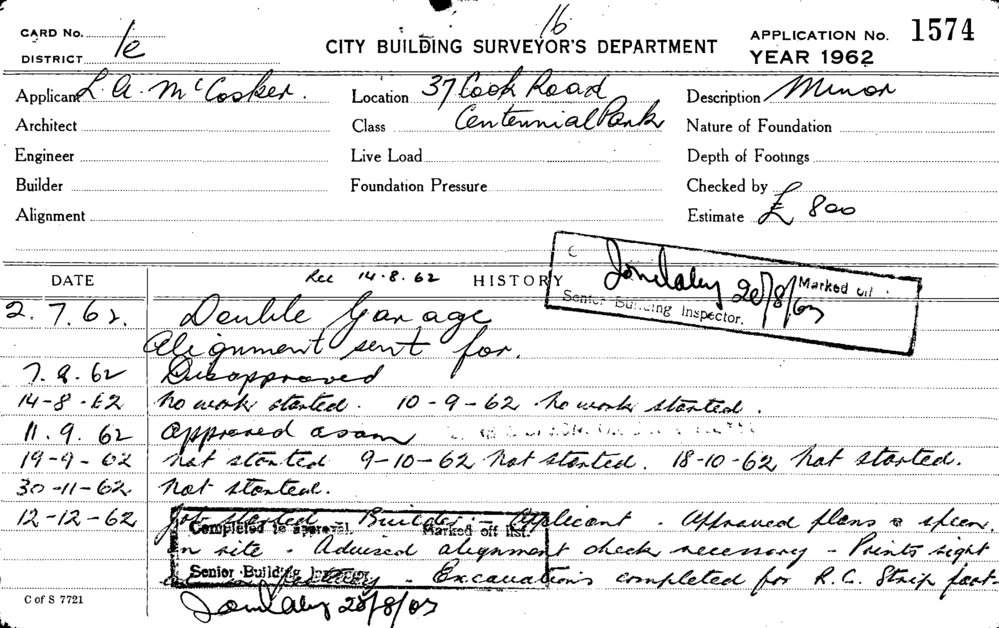 16
CARD No.
DISTRICT 1e
CITY BUILDING SURVEYOR'S DEPARTMENT
APPLICATION No. 1574
YEAR 1962
Applicant L. A. McCosker.
Location 37 Cook Road
Description Minor
Architect
Class Centennial Park
Nature of Foundation
Engineer
Live Load
Depth of Footings
Builder
Foundation Pressure
Checked by
Alignment
Estimate £ 800
DATE
Rec 14-8-62
HISTORY
Marked off
Senior Building Inspector.
2.7.62. Double Garage
Alignment sent for.
7.8.62 Disapproved
14-8-62 No work started. 10-9-62 No work started.
11.9.62 Approved
19-9-62 Not started 9-10-62 Not started. 18-10-62 Not started.
30-11-62 Not started.
12-12-62 Job started Builder - Applicant. Approved plans & specn.
Completed to approval. Marked off list.
on site - Advised alignment check necessary - Prints sight
Senior Building Inspector
- Excavations completed for R.C. Strip foot-
C of S 7721
28/8/63